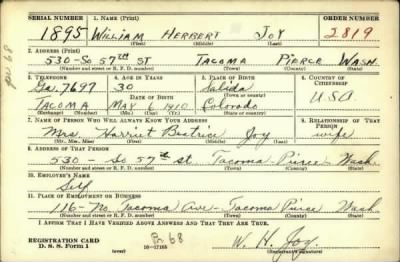 SERIAL NUMBER 1. NAME (Print) ORDER NUMBER
1895 WILLIAM HERBERT JOY 2819
(First) (Middle) (Last)
2. ADDRESS (Print)
530-SO 57TH ST TACOMA PIERCE WASH.
(Number and street or R. F. D. number) (Town) (County) (State)
3. TELEPHONE 4. AGE IN YEARS 5. PLACE OF BIRTH 6. COUNTRY OF CITIZENSHIP
Ga. 7697 30 Salida
DATE OF BIRTH (Town or county)
TACOMA MAY 6 1910 Colorado U.S.A.
(Exchange) (Number) (Mo.) (Day) (Yr.) (State or country)
7. NAME OF PERSON WHO WILL ALWAYS KNOW YOUR ADDRESS 8. RELATIONSHIP OF THAT PERSON
Mrs. Harriet Beatrice Joy wife
(Mr., Mrs., Miss) (First) (Middle) (Last)
9. ADDRESS OF THAT PERSON
530 - So 57th st. Tacoma - Pierce - Wash.
(Number and street or R. F. D. number) (Town) (County) (State)
10. EMPLOYER'S NAME
Self
11. PLACE OF EMPLOYMENT OR BUSINESS
116 - No. Tacoma Ave - Tacoma Pierce Wash
(Number and street or R. F. D. number) (Town) (County) (State)
I AFFIRM THAT I HAVE VERIFIED ABOVE ANSWERS AND THAT THEY ARE TRUE.
REGISTRATION CARD
D. S. S. Form 1 (over) 16-17105 W. H. Joy.
(Registrant's signature)
68
68